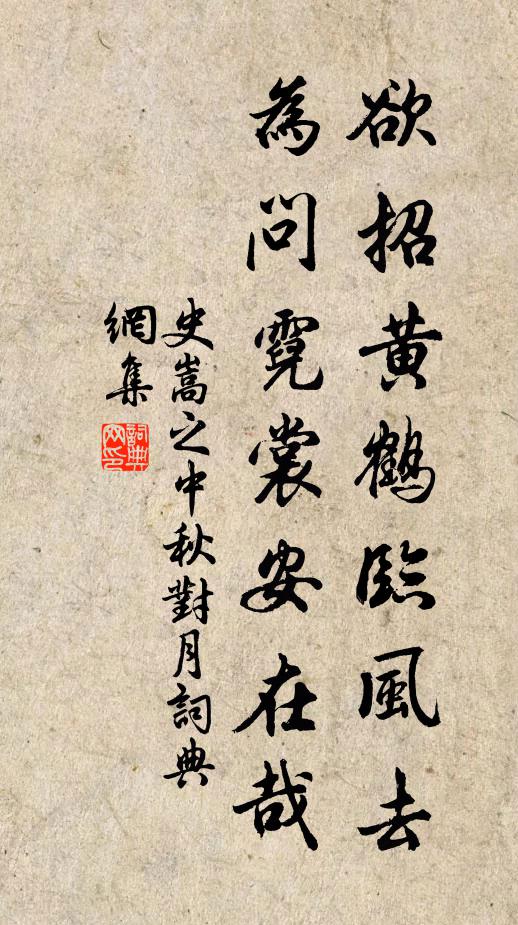 欲招黃鶴臨風去
為問霓裳安在哉
史嵩之中秋對月詞典
網集
詞典
网印